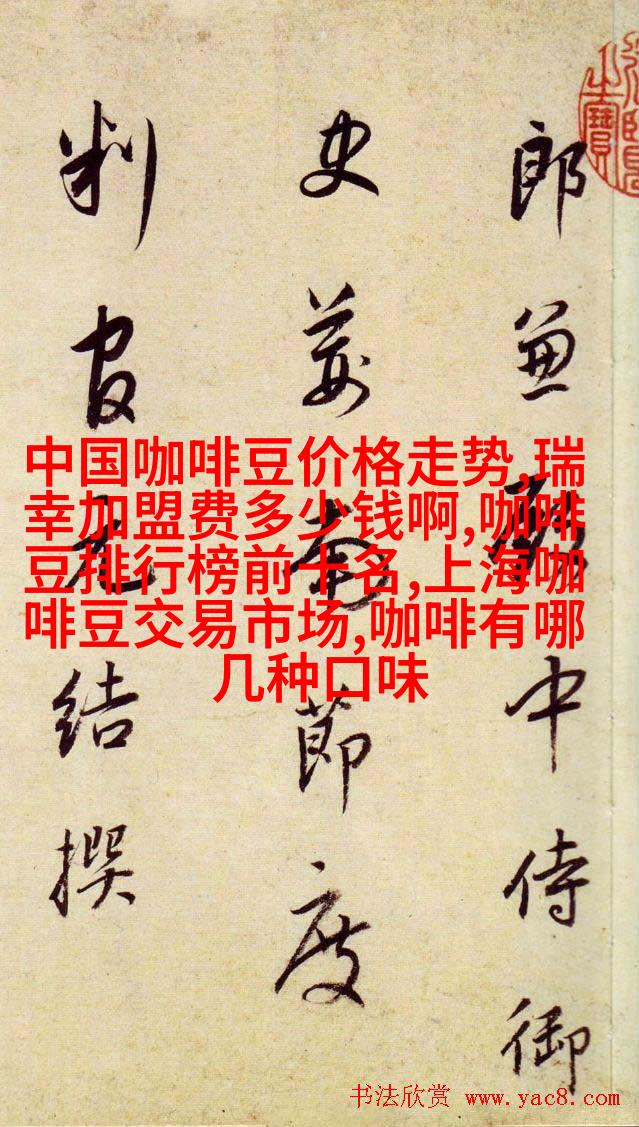 郎兼殿中侍御
史荊南節度
判官元結撰
中国咖啡豆价格走势,瑞
幸加盟费多少钱啊,咖啡
豆排行榜前十名,上海咖
啡豆交易市场,咖啡有哪
几种口味
书法欣赏 www.yac8.com